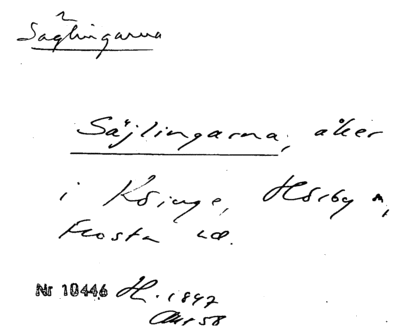 Säglingarna
Säjlingarna, åker
i Köinge, Hörby sn,
Frosta hd.
Nr 10446 H. 1847
Akt 58